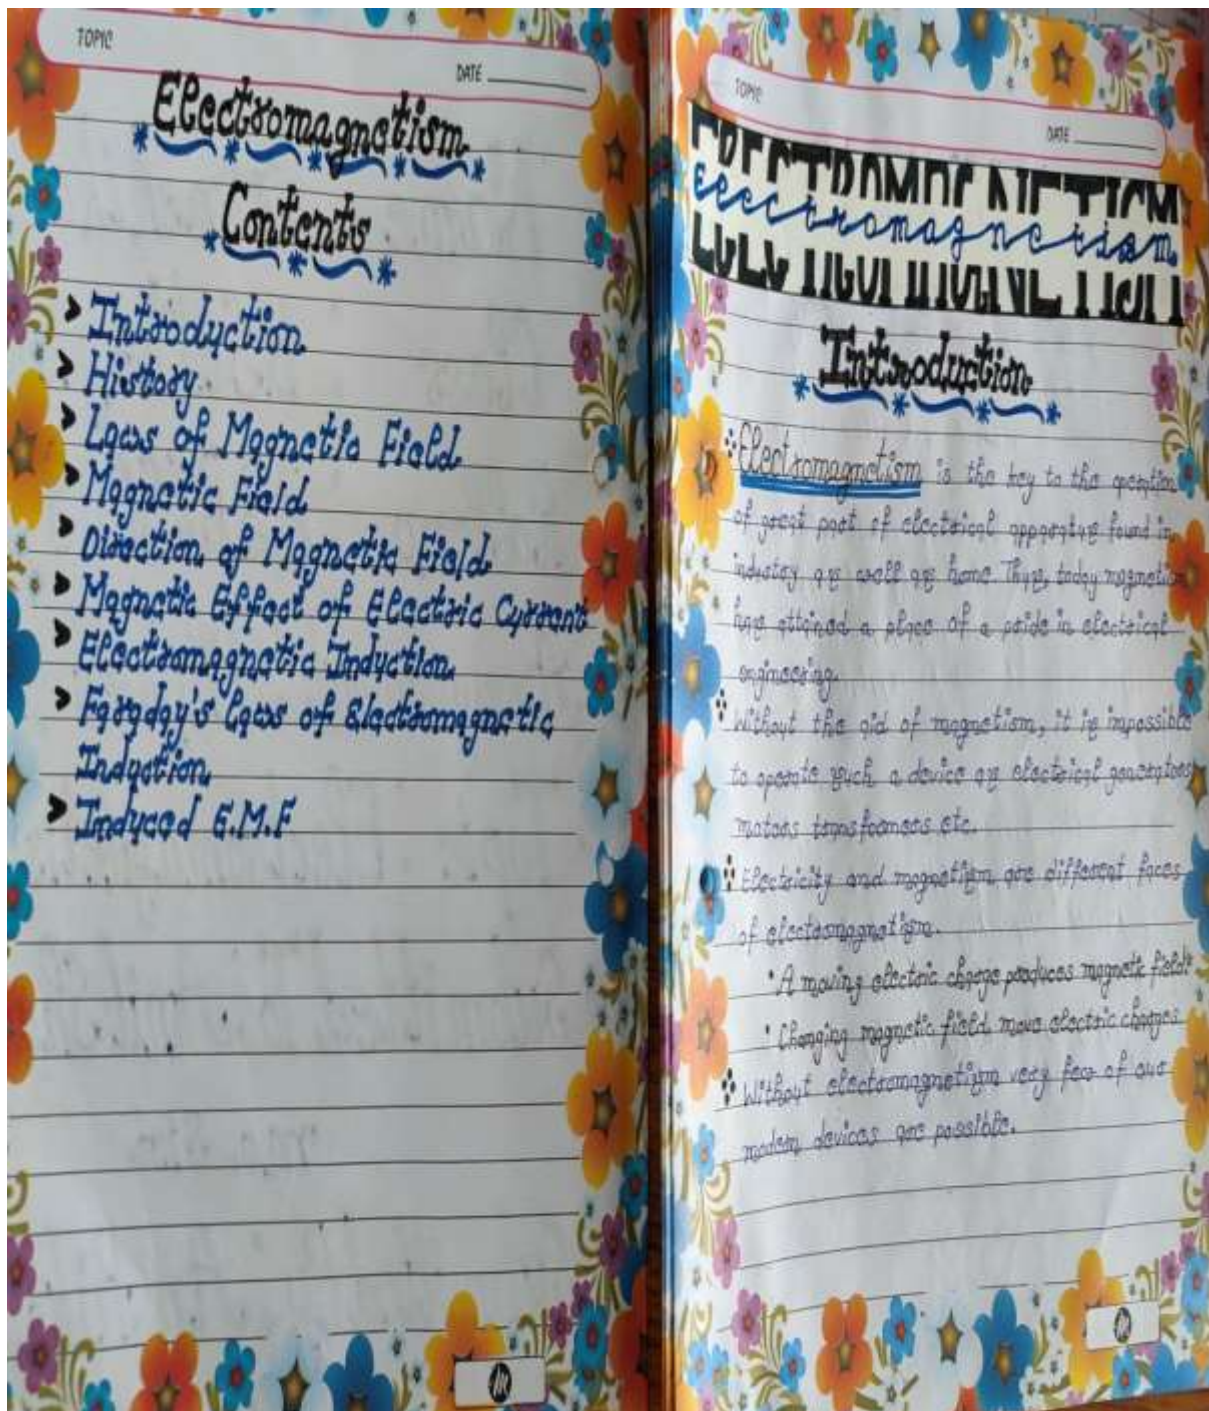 TOPIC
DATE
Electromagnetism
Contents
Introduction
History
Laws of Magnetic Field
Magnetic Field
Direction of Magnetic Field
Magnetic Effect of Electric Current
Electromagnetic Induction
Faraday's laws of Electromagnetic
Induction
Induced E.M.F
TOPIC
DATE
ELECTROMAGNETISM
electromagnetism
Introduction
Electromagnetism is the key to the operation
of great part of electrical apparatus found in
industry as well as home. Thus, today magnetism
has attained a place of a pride in electrical
engineering.
Without the aid of magnetism, it is impossible
to operate such a device as electrical generators
motors transformers etc.
Electricity and magnetism are different faces
of electromagnetism.
• A moving electric charge produces magnetic field.
• Changing magnetic field move electric charges
Without electromagnetism very few of our
modern devices are possible.